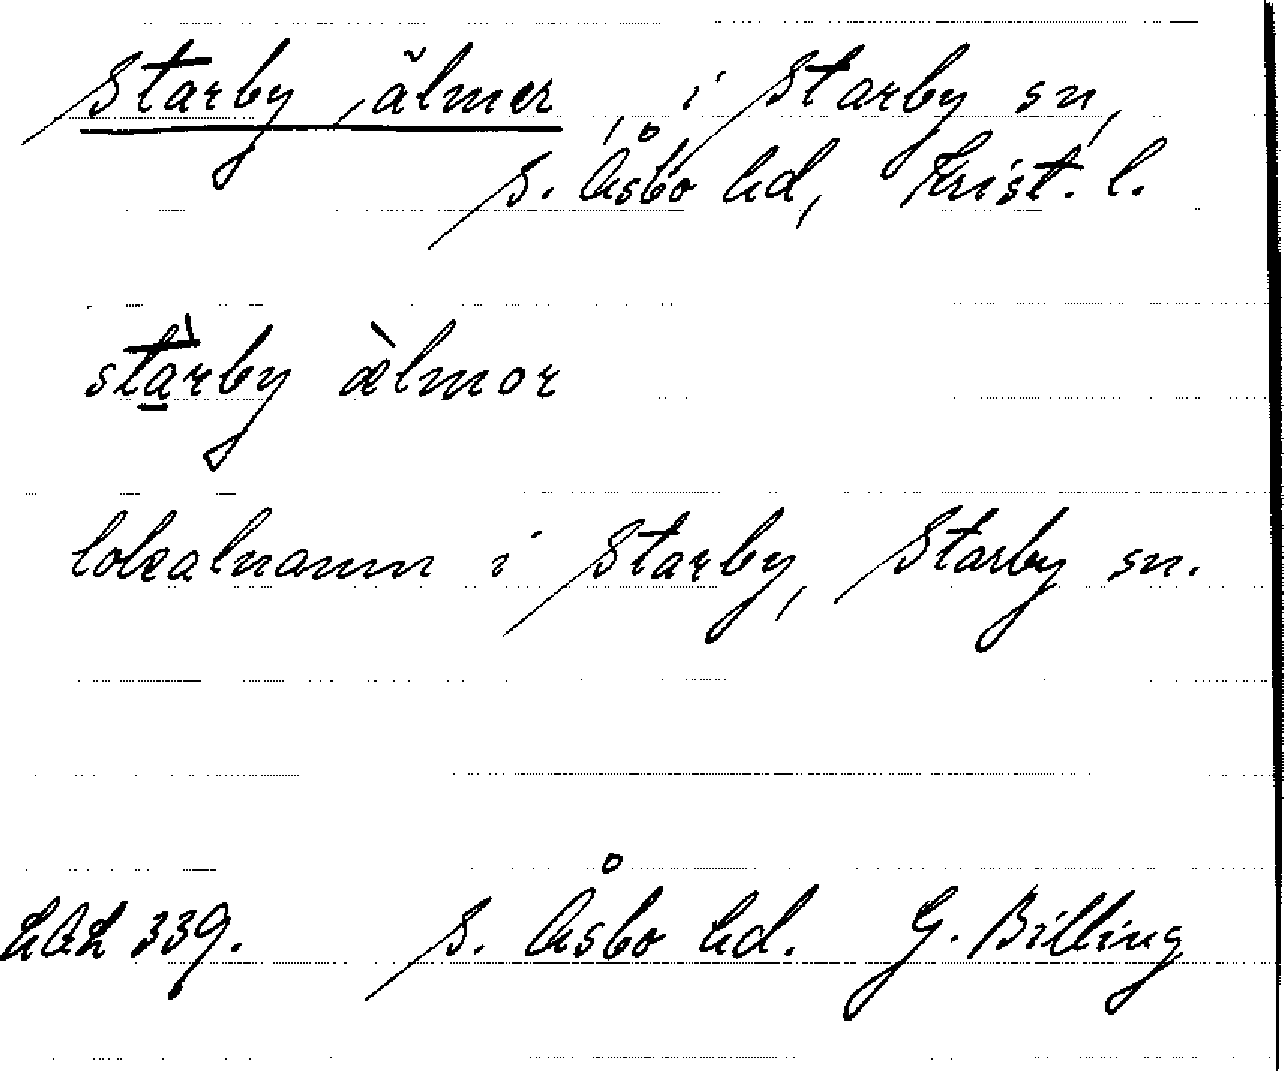 Starby ,älmer, i Starby sn,
S. Åsbo hd, Krist. l.
stàrby æ̀lmor
lokalnamn i Starby, Starby sn.
LAL 339. S. Åsbo hd. G. Billing